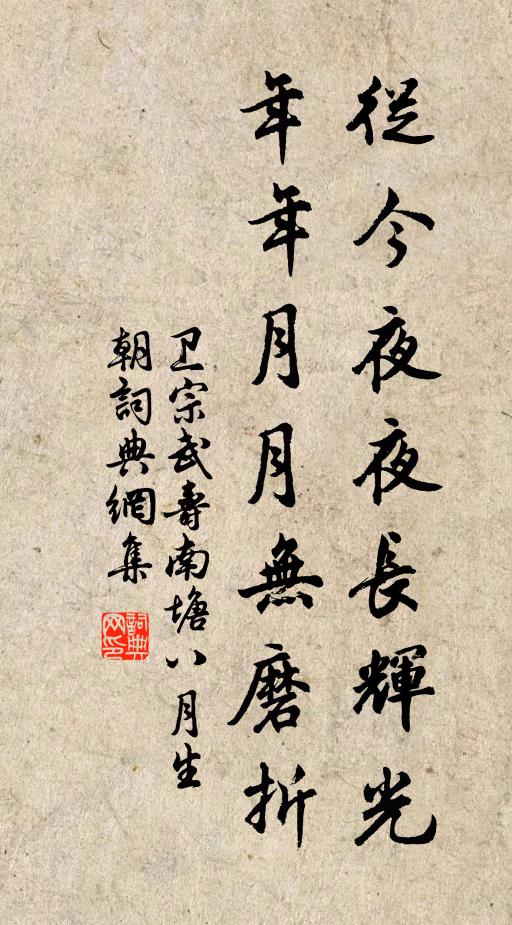 從今夜夜長輝光
年年月月無磨折
卫宗武壽南塘八月生
朝詞典網集
詞典
网印